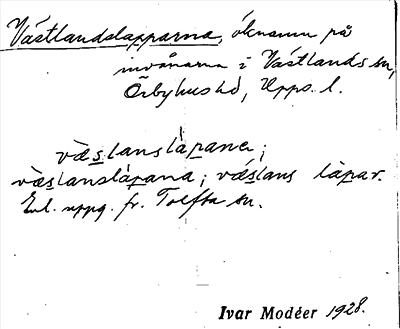 Västlandslapparna, öknamn på
invånarna i Västlands sn,
Örbyhus hd, Upps. l.
væslanslàpaner;
væslanslàpana; væslans làpar.
Enl. uppg. fr. Tolfta sn.
Ivar Modéer 1928.